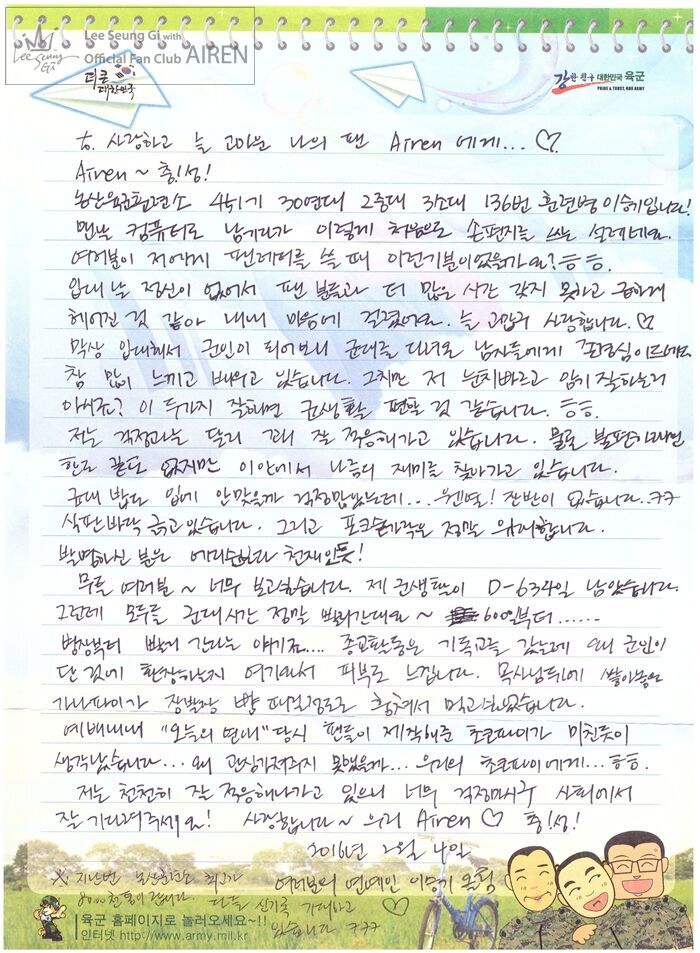 Lee Seung Gi with
Official Fan Club AIREN
Lee Seung Gi
더 큰
대한민국
강한 친구 대한민국 육군
PRIDE & TRUST, ROK ARMY
to. 사랑하고 늘 고마운 나의 팬 Airen 에게... ♡
Airen ~ 충!성!
논산육군훈련소 30연대 2중대 3소대 136번 훈련병 이승기입니다!
맨날 컴퓨터로 남기다가 이렇게 처음으로 손편지를 쓰는 설레네요.
여러분이 저에게 팬레터를 쓸 때 이런기분이었을까요? ㅎㅎ.
입대 날 정신이 없어서 팬 분들과 더 많은 시간 갖지 못하고 급하게
헤어진 것 같아 내내 마음에 걸렸어요. 늘 고맙고 사랑합니다. ♡
막상 입대해서 군인이 되어보니 군대를 다녀온 남자들에게 존경심이
참 많이 느끼고 배우고 있습니다. 그치만 저 눈치빠르고 암기 잘하는거
아시죠? 이 두가지 잘하면 군생활 편할 것 같습니다. ㅎㅎ.
저는 걱정과는 달리 꽤 잘 적응해가고 있습니다. 물론 불편
한도 끝도 없지만 이 안에서 나름의 재미를 찾아가고 있습니다.
군대 밥도 입에 안맞을까 걱정많았는데... 웬열! 잔반이 없습니다.. ㅋㅋ
식판바닥 긁고있습니다. 그리고 포크숟가락은 정말 위대합니다.
발명하신 분은 에디슨보다 천재인듯!
무튼 여러분 ~ 너무 보고싶습니다. 제 군생활이 D-634일 남았습니다.
그런데 모두들 군대시간 정말 빨리간대요 ~ 600일부터......
병장부터 빨리 간다는 얘기죠.... 종교활동은 기독교를 갔는데 왜 군인이
단 것에 환장하는지 여기와서 피부로 느낍니다. 목사님뒤에 쌓아놓은
가나파이가 장발장 빵 훔쳐서 먹고싶었습니다.
예배내내 "오늘의 연애" 당시 팬들이 제작해준 초코파이가 미친듯이
생각났습니다... 왜 관심가져주지 못했을까... 우리의 초코파이에게... ㅎㅎ.
저는 천천히 잘 적응해나가고 있으니 너무 걱정마시구 사회에서
잘 기다려주세요! 사랑합니다 ~ 우리 Airen ♡ 충!성!
2016년 2월 4일
여러분의 연예인 이승기 올림
♡
※ 지난번 논산훈련소 최고가
다들 신기록 기대하고
있습니다 ㅋㅋㅋ
육군 홈페이지로 놀러오세요~!!
인터넷 http://www.army.mil.kr